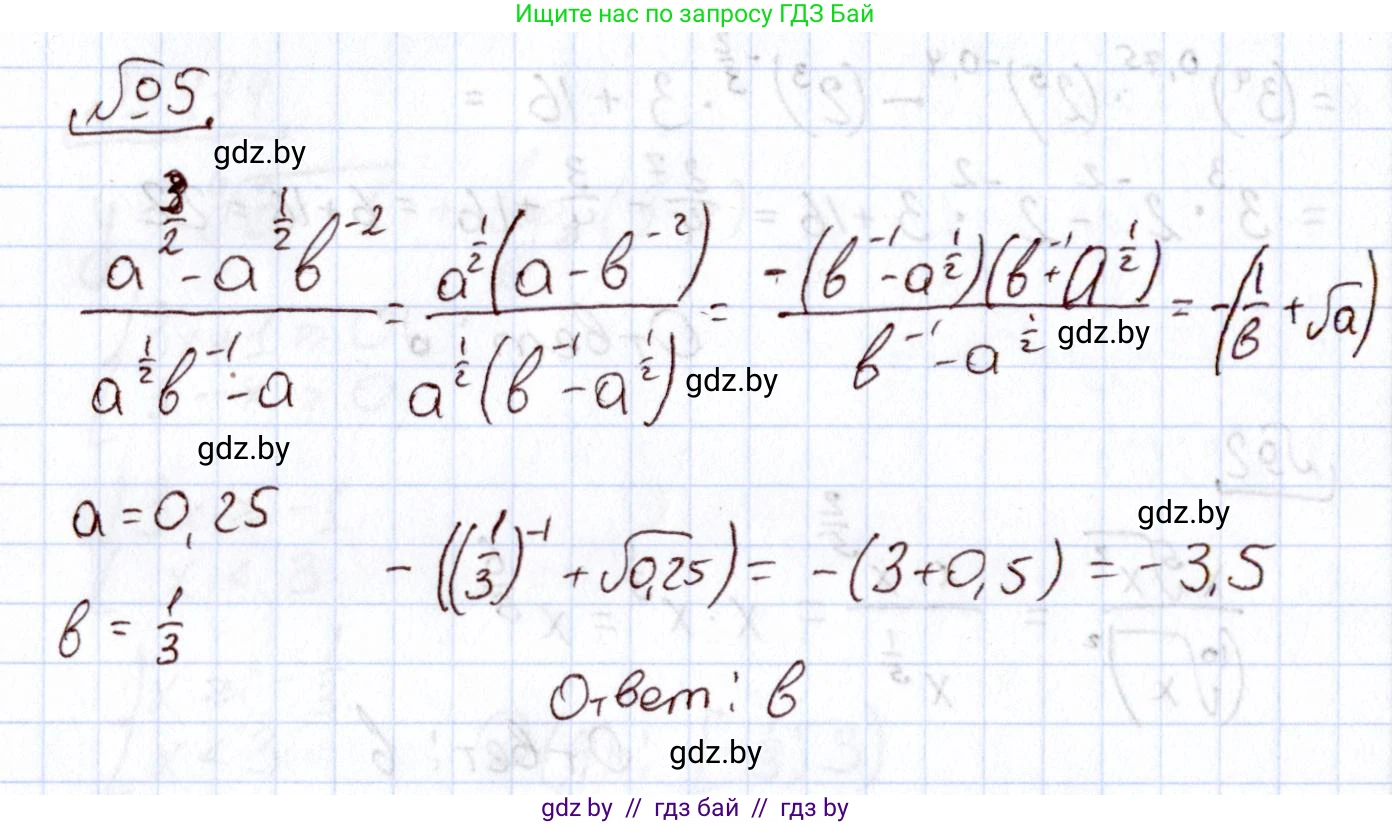 Ищите нас по запросу ГДЗ Бай
№5
gdz.by
(a^(3/2) - a^(1/2) в^(-2)) / (a^(1/2) в^(-1) - a) = (a^(1/2) (a - в^(-2))) / (a^(1/2) (в^(-1) - a^(1/2))) = (-(в^(-1) - a^(1/2)) (в^(-1) + a^(1/2))) / (в^(-1) - a^(1/2)) = -(1/в + √a)
gdz.by
gdz.by
gdz.by
a = 0,25
gdz.by
-((1/3)^(-1) + √0,25) = -(3+0,5) = -3,5
в = 1/3
Ответ: в
gdz.by
gdz.by // гдз бай // гдз by